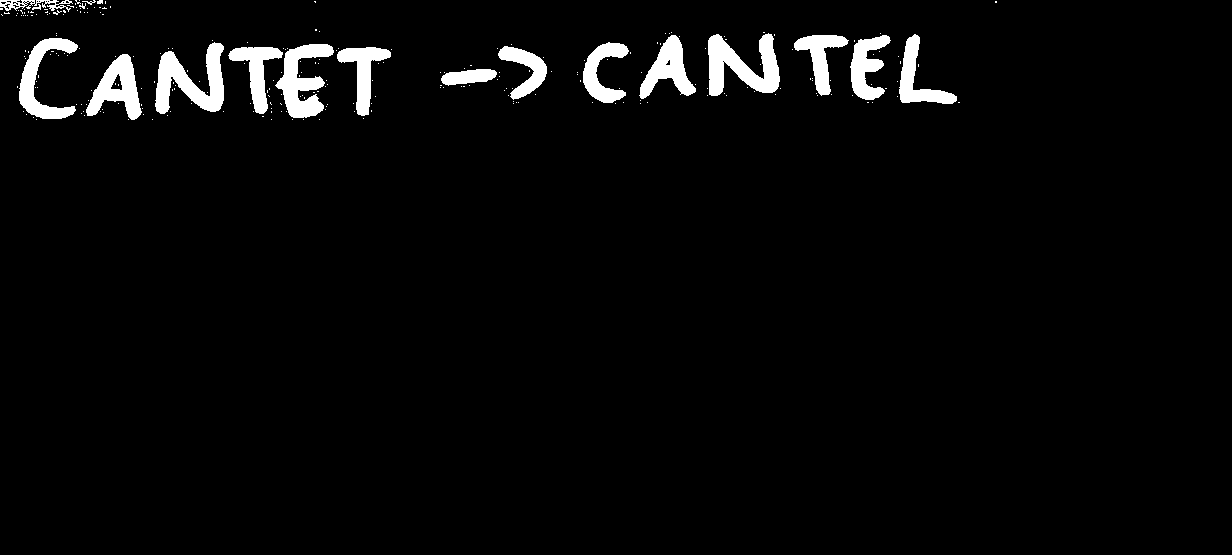 CANTET -> CANTEL